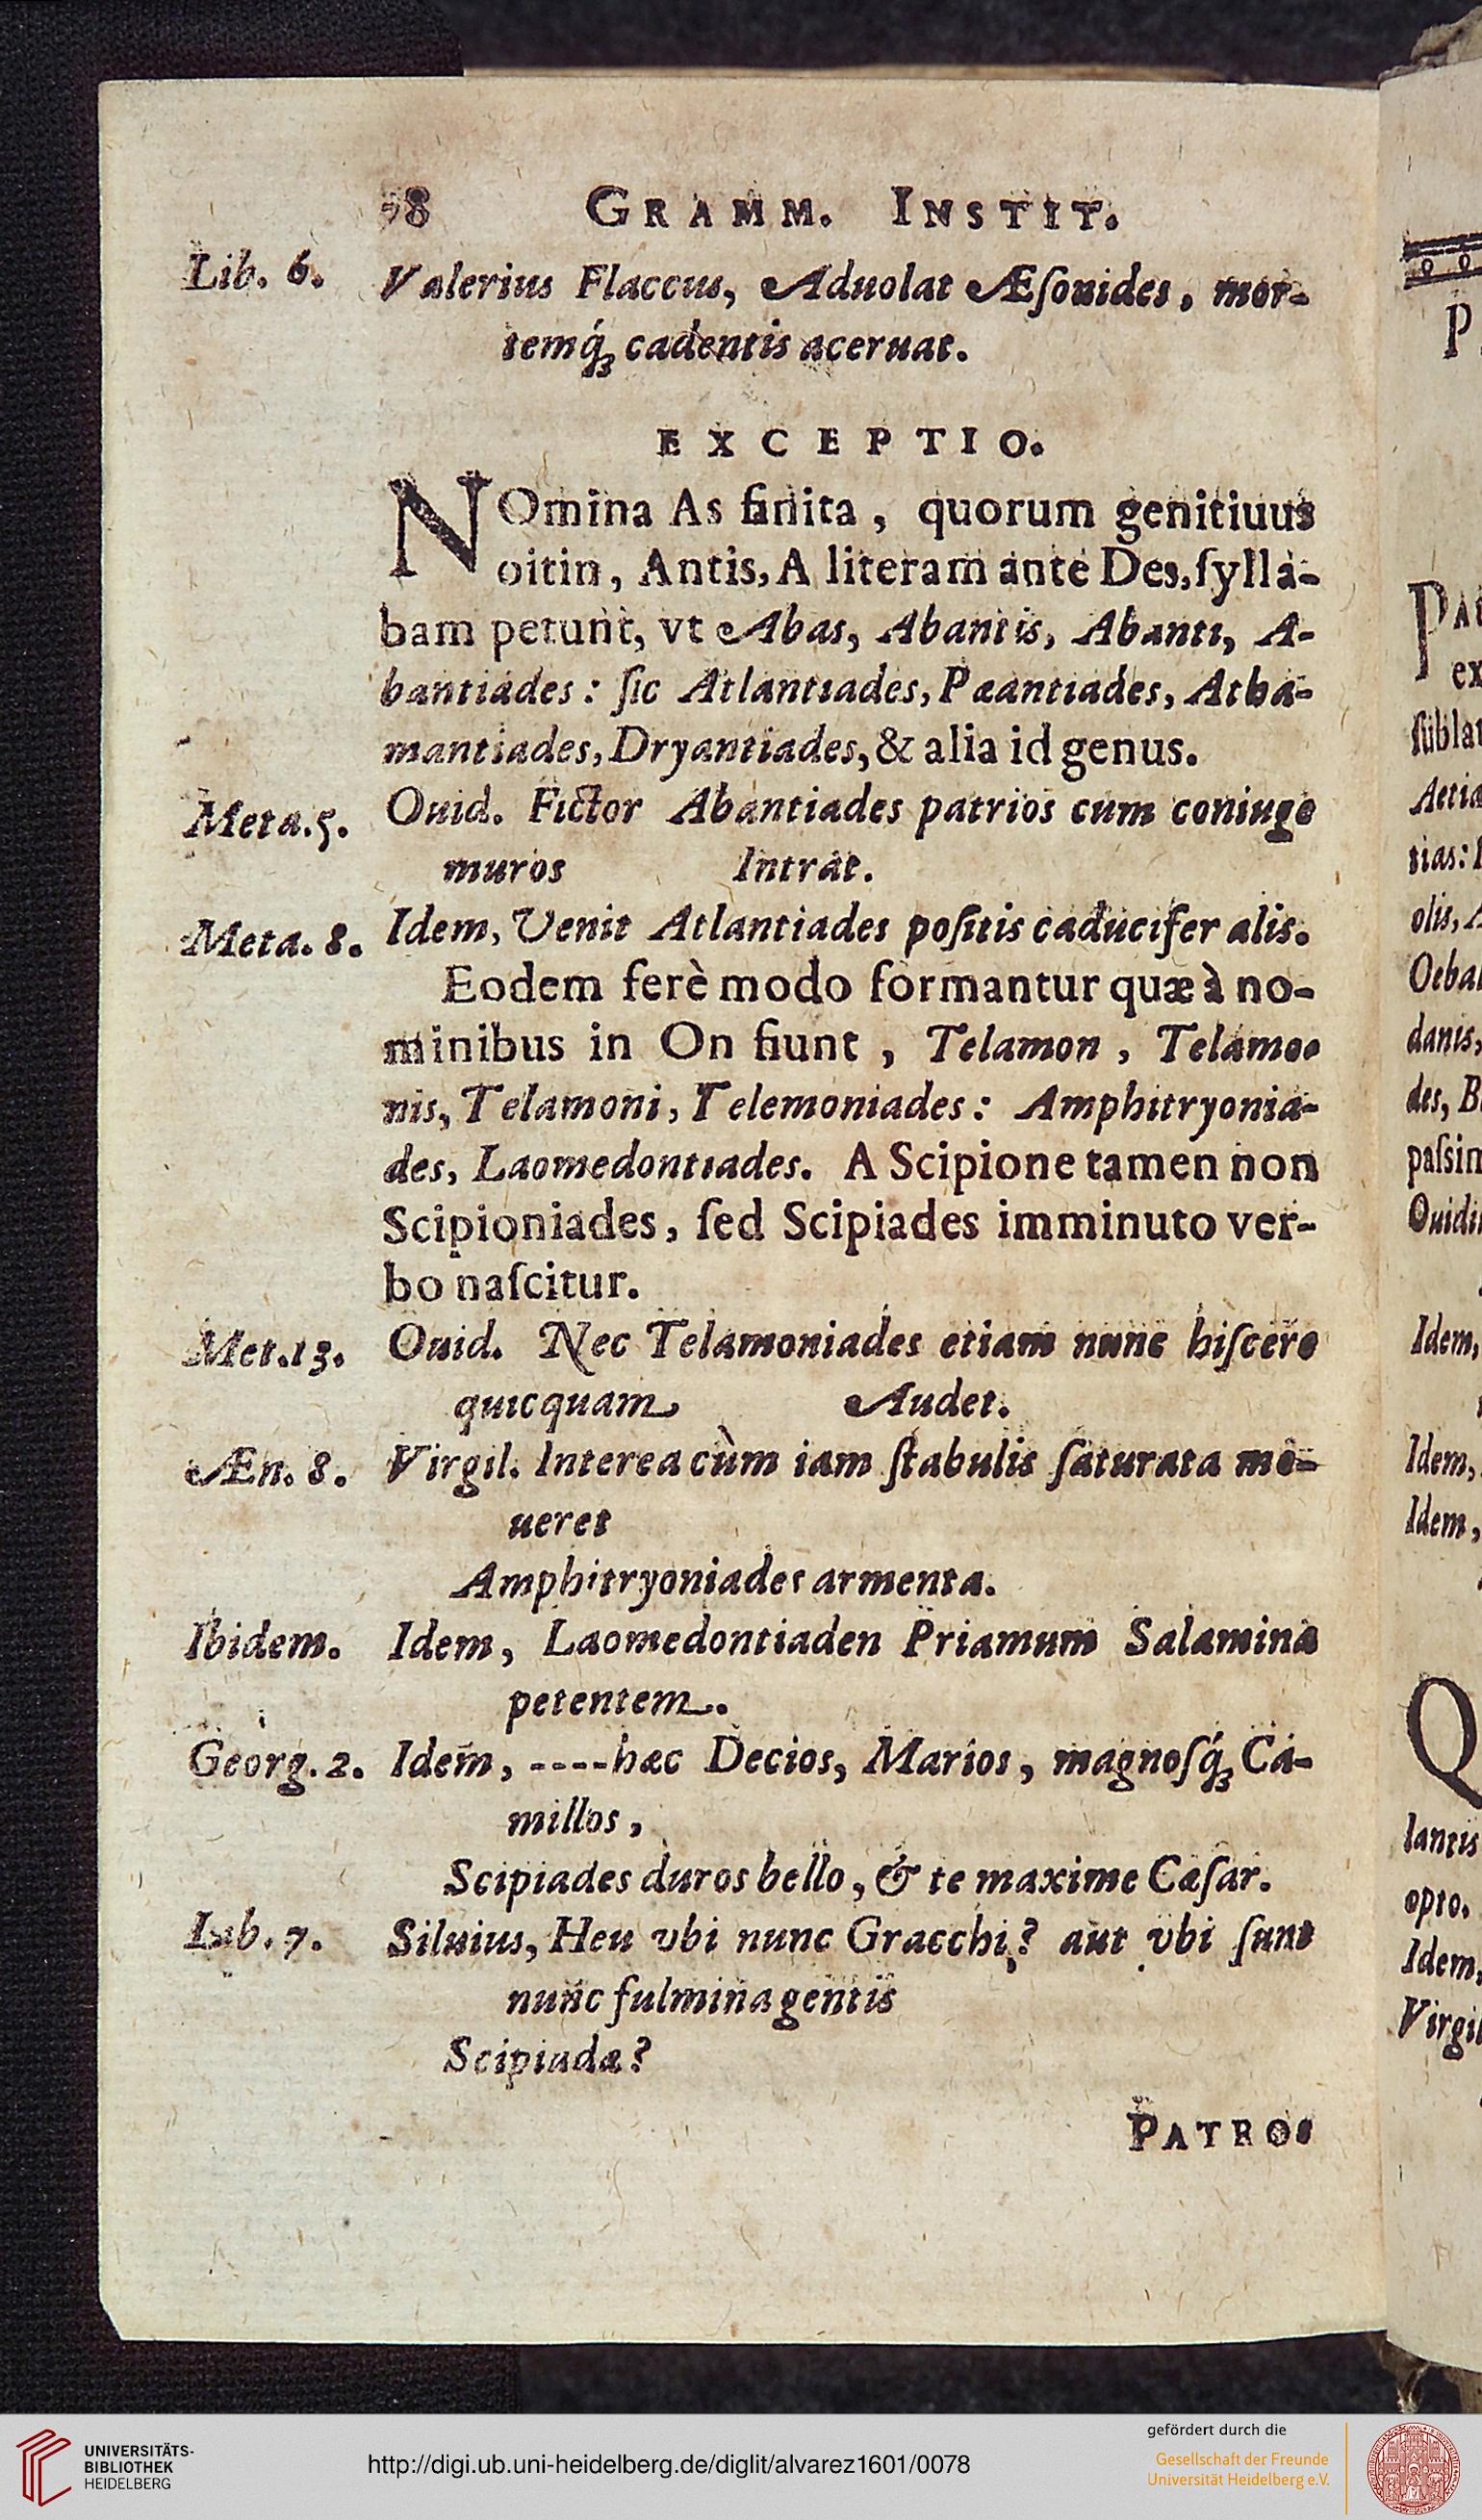 78 GRAMM. INSTIT.
Lib. 6. Valerius Flaccus, Aduolat Æſonides, mor-
temq́; cadentis aceruat.
EXCEPTIO.
NOmina As finita, quorum genitiuus
oitin, Antis, A literam ante Des, ſylla-
bam petunt, vt Abas, Abantis, Abanti, A-
bantiades: ſic Atlantiades, Pæantiades, Atha-
mantiades, Dryantiades, & alia id genus.
Meta. 5. Ouid. Fictor Abantiades patrios cum coniuge
muros Intrat.
Meta. 8. Idem, Venit Atlantiades poſitis caducifer alis.
Eodem ferè modo formantur quæ à no-
minibus in On fiunt, Telamon, Telamo-
nis, Telamoni, Telemoniades: Amphitryonia-
des, Laomedontiades. A Scipione tamen non
Scipioniades, ſed Scipiades imminuto ver-
bo naſcitur.
Met. 13. Ouid. Nec Telamoniades etiam nunc hiſcere
quicquam Audet.
Æn. 8. Virgil. Interea cùm iam ſtabulis ſaturata mo-
ueret
Amphitryoniades armenta.
Ibidem. Idem, Laomedontiaden Priamum Salamina
petentem.
Georg. 2. Idem, ----hæc Decios, Marios, magnoſq́; Ca-
millos,
Scipiades duros bello, & te maxime Cæſar.
Lib. 7. Siluius, Heu vbi nunc Gracchi? aut vbi ſunt
nunc fulmina gentis
Scipiadæ?
PATRO-
P
PAT
ex
ſublat
Aetia
tias:
olis, A
Oebal
danis,
des, B
paſsim
Ouidi
Idem,
Idem,
Idem,
Q
lantis
opto.
Idem,
Virgil
UNIVERSITÄTS-
BIBLIOTHEK
HEIDELBERG
http://digi.ub.uni-heidelberg.de/diglit/alvarez1601/0078
gefördert durch die
Gesellschaft der Freunde
Universität Heidelberg e.V.